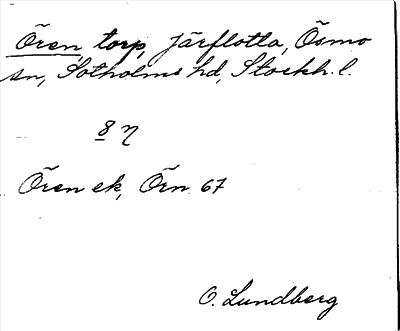 Ören, torp, Järflotta, Ösmo
sn, Sotholms hd, Stockh. l.
Ören ek, Örn. 67
O. Lundberg